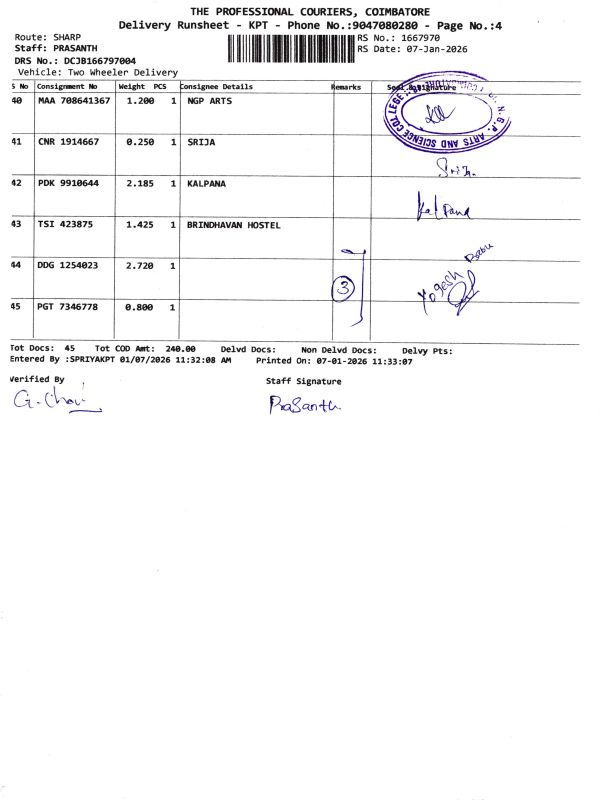 THE PROFESSIONAL COURIERS, COIMBATORE
Delivery Runsheet - KPT - Phone No.:9047080280 - Page No.:4
Route: SHARP
RS No.: 1667970
Staff: PRASANTH
RS Date: 07-Jan-2026
DRS No.: DCJB166797004
Vehicle: Two Wheeler Delivery
S No Consignment No Weight PCS Consignee Details Remarks Seal & Signature
40 MAA 708641367 1.200 1 NGP ARTS
N.G.P. ARTS AND SCIENCE COLLEGE
41 CNR 1914667 0.250 1 SRIJA
Srija
42 PDK 9910644 2.185 1 KALPANA
Kalpana
43 TSI 423875 1.425 1 BRINDHAVAN HOSTEL
44 DDG 1254023 2.720 1
3 Yogesh Babu
45 PGT 7346778 0.800 1
Tot Docs: 45 Tot COD Amt: 240.00 Delvd Docs: Non Delvd Docs: Delvy Pts:
Entered By :SPRIYAKPT 01/07/2026 11:32:08 AM Printed On: 07-01-2026 11:33:07
Verified By
Staff Signature
PraSanth